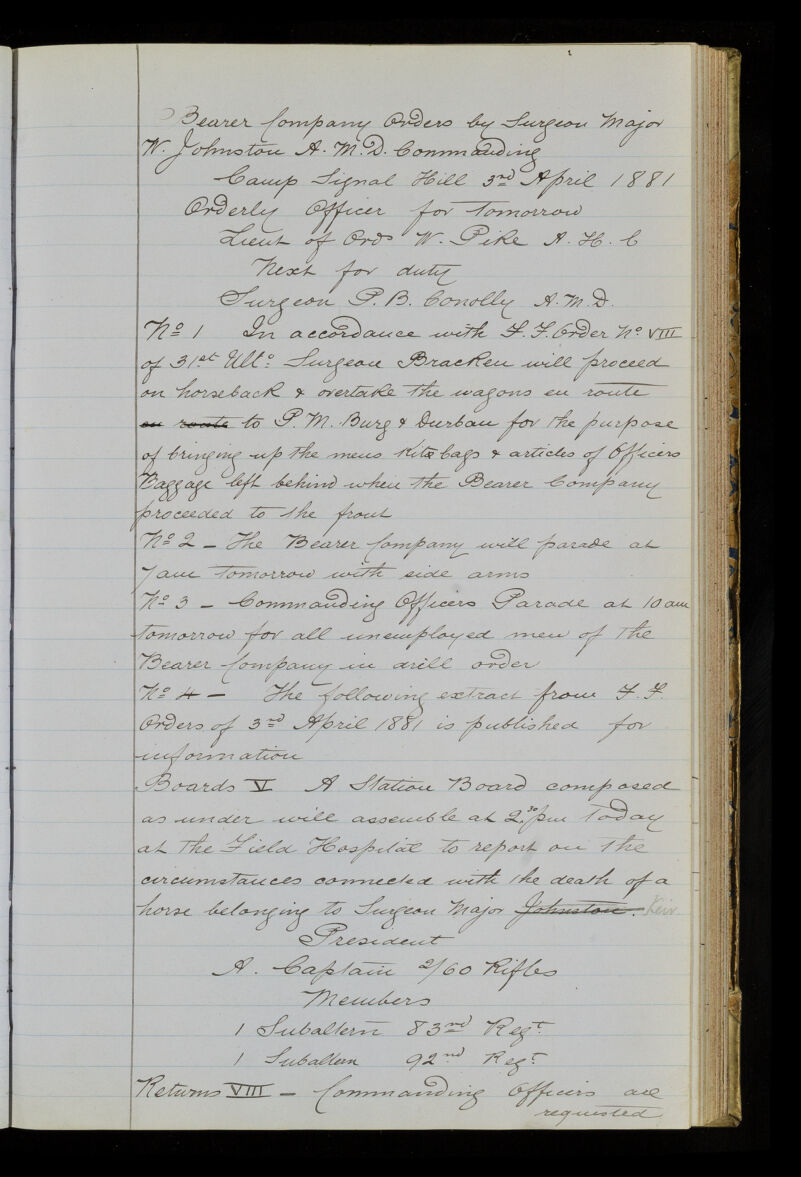 Bearer Company Orders by Surgeon Major
W. Johnston A. M. D. Commanding
Camp Signal Hill 3rd April 1881
Orderly Officer for tomorrow
Lieut of Ords W. Pike A. H. C
Next for duty
Surgeon P. B. Conolly A. M. D.
No 1 In accordance with F. F. Order No VIII
of 31st Ulto Surgeon Bracken will proceed
on horseback & overtake the wagons en route
en route to P. M. Burg & Durban for the purpose
of bringing up the mens Kit bags & articles of Officers
Baggage left behind when the Bearer Company
proceeded to the front
No 2 - The Bearer Company will parade at
7 am tomorrow with side arms
No 3 - Commanding Officers Parade at 10 am
tomorrow for all unemployed men of the
Bearer Company in drill order
No 4 - The following extract from F. F.
Orders of 3rd April 1881 is published for
information
Boards V A Station Board composed
as under will assemble at 2.30 pm today
at the Field Hospital to report on the
circumstances connected with the death of a
horse belonging to Surgeon Major Johnston. Keir
President
A. Captain 2/60 Rifles
Members
1 Subaltern 83rd Regt
1 Subaltern 92nd Regt
Returns VIII - Commanding Officers are
requested